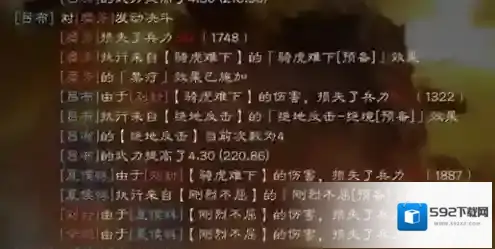 的武力提高了4.30
[吕布]对[糜芳]发动决斗
[糜芳]损失了兵力 (1748)
[糜芳]执行来自【骑虎难下】的「骑虎难下[预备]」效果
[糜芳]的「易疗」效果已施加
[吕布]由于[刘封]【骑虎难下】的伤害，损失了兵力 (1322)
[吕布]执行来自【绝地反击】的「绝地反击-绝境[预备]」效果
[吕布]的【绝地反击】当前次数为4
[吕布]的武力提高了4.30(220.86)
[夏侯惇]由于[刘封]【骑虎难下】的伤害，损失了兵力 (1887)
[夏侯惇]执行来自【刚烈不屈】的「刚烈不屈[预备]
由于[夏侯惇]【刚烈不屈】的伤害，损失
由于[夏侯惇]【刚烈不屈】的伤害，损失
592下载网